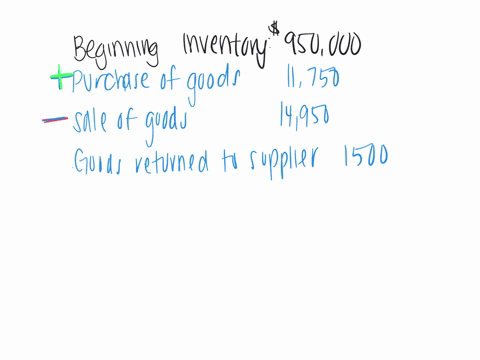 Beginning Inventory: $950,000
+ Purchase of goods 11,750
- sale of goods 14,950
Goods returned to supplier 1500